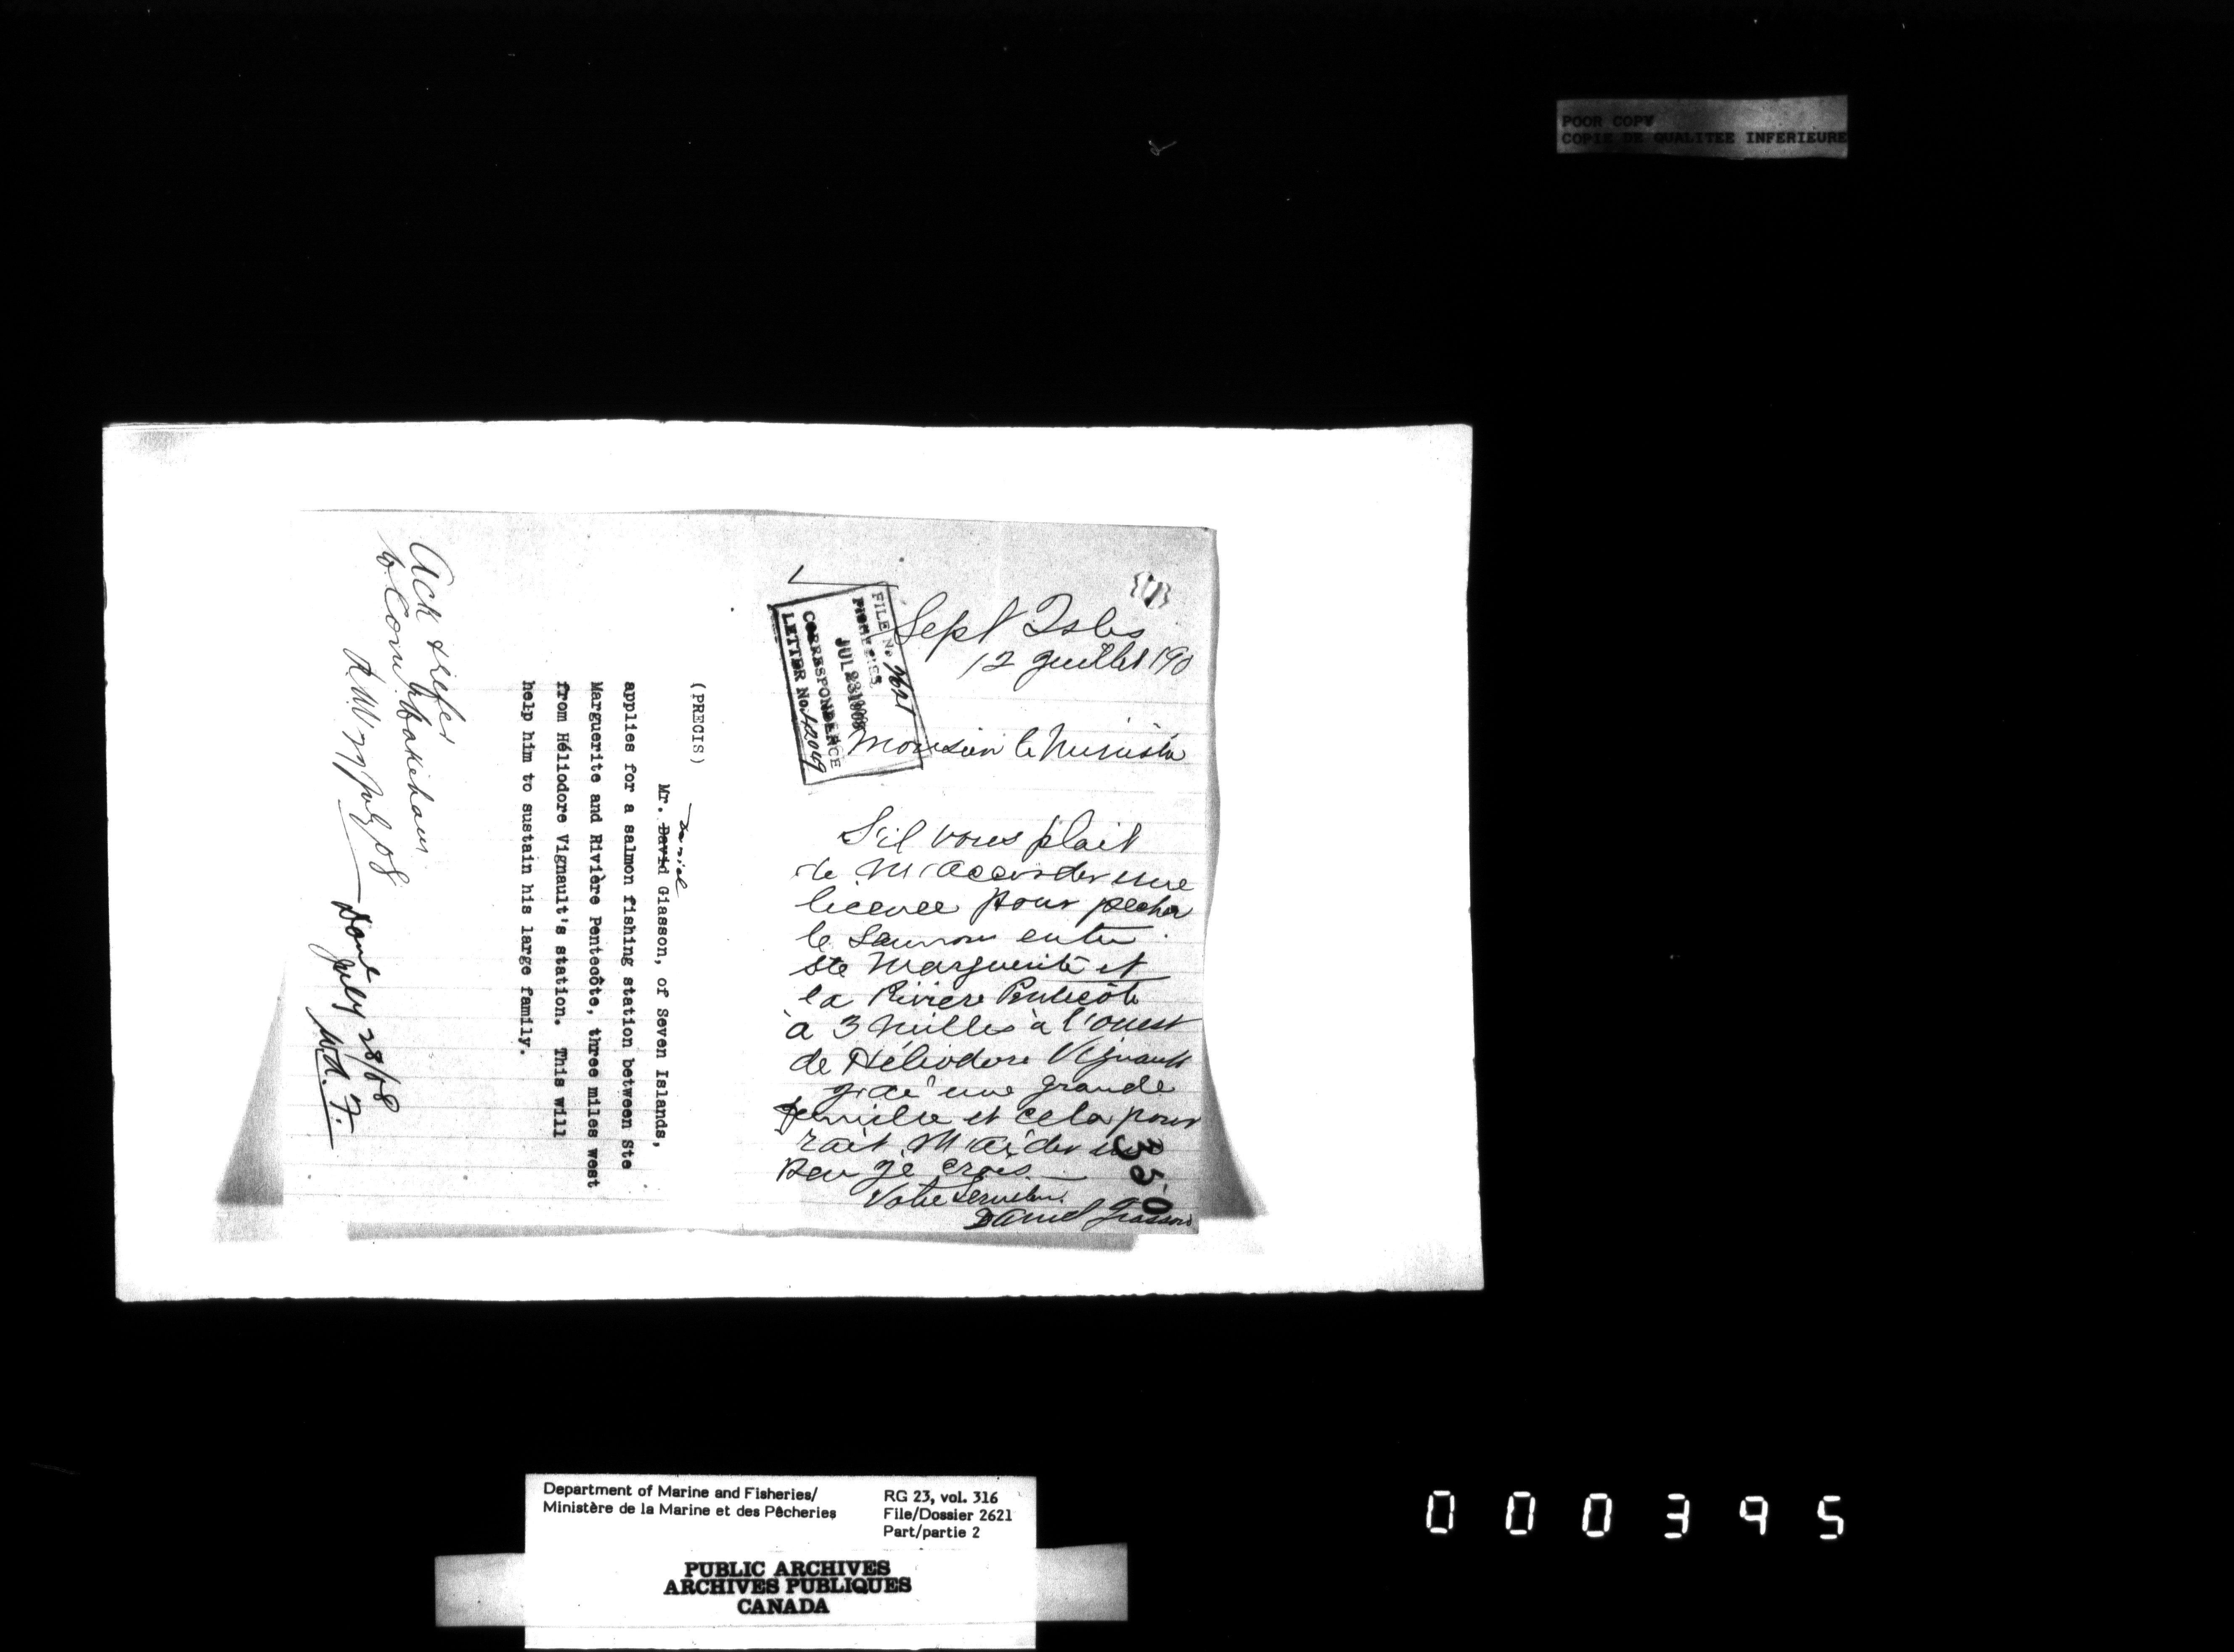 POOR COPY
COPIE DE QUALITEE INFERIEURE
Sept Isles
12 Juillet 190
FILE No 2621
FISHERIES
JUL 23 1908
CORRESPONDENCE
LETTER No. 12049
Monsieur le Ministre
S'il vous plait
de M'accorder une
licence pour pecher
le Saumon entre
Ste Marguerite et
la Riviere Pentecôte
à 3 Milles à l'ouest
de Héliodore Vignault
j'ai une grande
famille et cela pour
rait M'aider un
peu je crois
Votre Serviteur
Daniel Giasson
350
(PRECIS)
Daniel
Mr. David Giasson, of Seven Islands,
applies for a salmon fishing station between Ste
Marguerite and Rivière Pentecôte, three miles west
from Héliodore Vignault's station. This will
help him to sustain his large family.
Ack & refer
to Com. Wakeham
27 July/08
Done
July 28/08
W.A.F.
Department of Marine and Fisheries/
Ministère de la Marine et des Pêcheries
RG 23, vol. 316
File/Dossier 2621
Part/partie 2
PUBLIC ARCHIVES
ARCHIVES PUBLIQUES
CANADA
000395